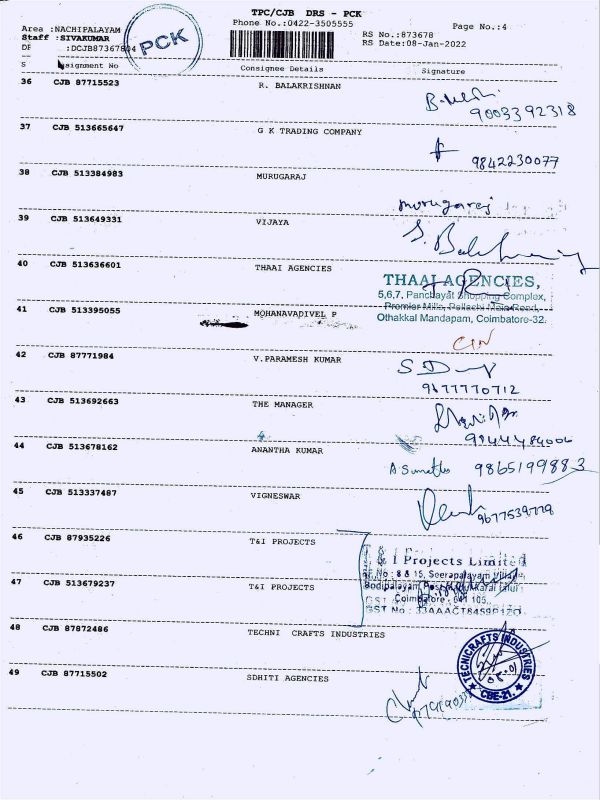 TPC/CJB DRS - PCK
Phone No.:0422-3505555
Page No.:4
Area :NACHIPALAYAM
Staff :SIVAKUMAR
:DCJB87367804
PCK
RS No.:873678
RS Date:08-Jan-2022
Consignee Details
Signature
36 CJB 87715523 R. BALAKRISHNAN
9003392318
37 CJB 513665647 G K TRADING COMPANY
9842230077
38 CJB 513384983 MURUGARAJ
murugaraj
39 CJB 513649331 VIJAYA
40 CJB 513636601 THAAI AGENCIES
THAAI AGENCIES,
5,6,7, Panchayat Shopping Complex,
Premier Mills, Pollachi Main Road,
Othakkal Mandapam, Coimbatore-32.
41 CJB 513395055 MOHANAVADIVEL P
42 CJB 87771984 V.PARAMESH KUMAR
9677770712
43 CJB 513692663 THE MANAGER
44 CJB 513678162 ANANTHA KUMAR
9865199883
45 CJB 513337487 VIGNESWAR
9677539778
46 CJB 87935226 T&I PROJECTS
T & I Projects Limited
47 CJB 513679237 T&I PROJECTS
Coimbatore - 641 105.
48 CJB 87872486 TECHNI CRAFTS INDUSTRIES
TECNICRAFTS INDUSTRIES
CBE-21.
49 CJB 87715502 SDHITI AGENCIES